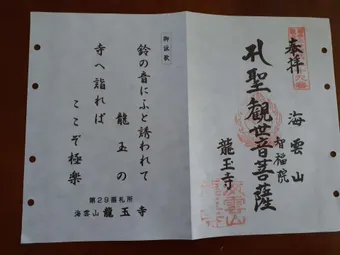 奉拝
海雲山
智福院
聖観世音菩薩
龍玉寺
御詠歌
鈴の音にふと誘われて
龍玉の
寺へ詣れば
ここぞ極楽
第29番札所
海雲山 龍玉寺